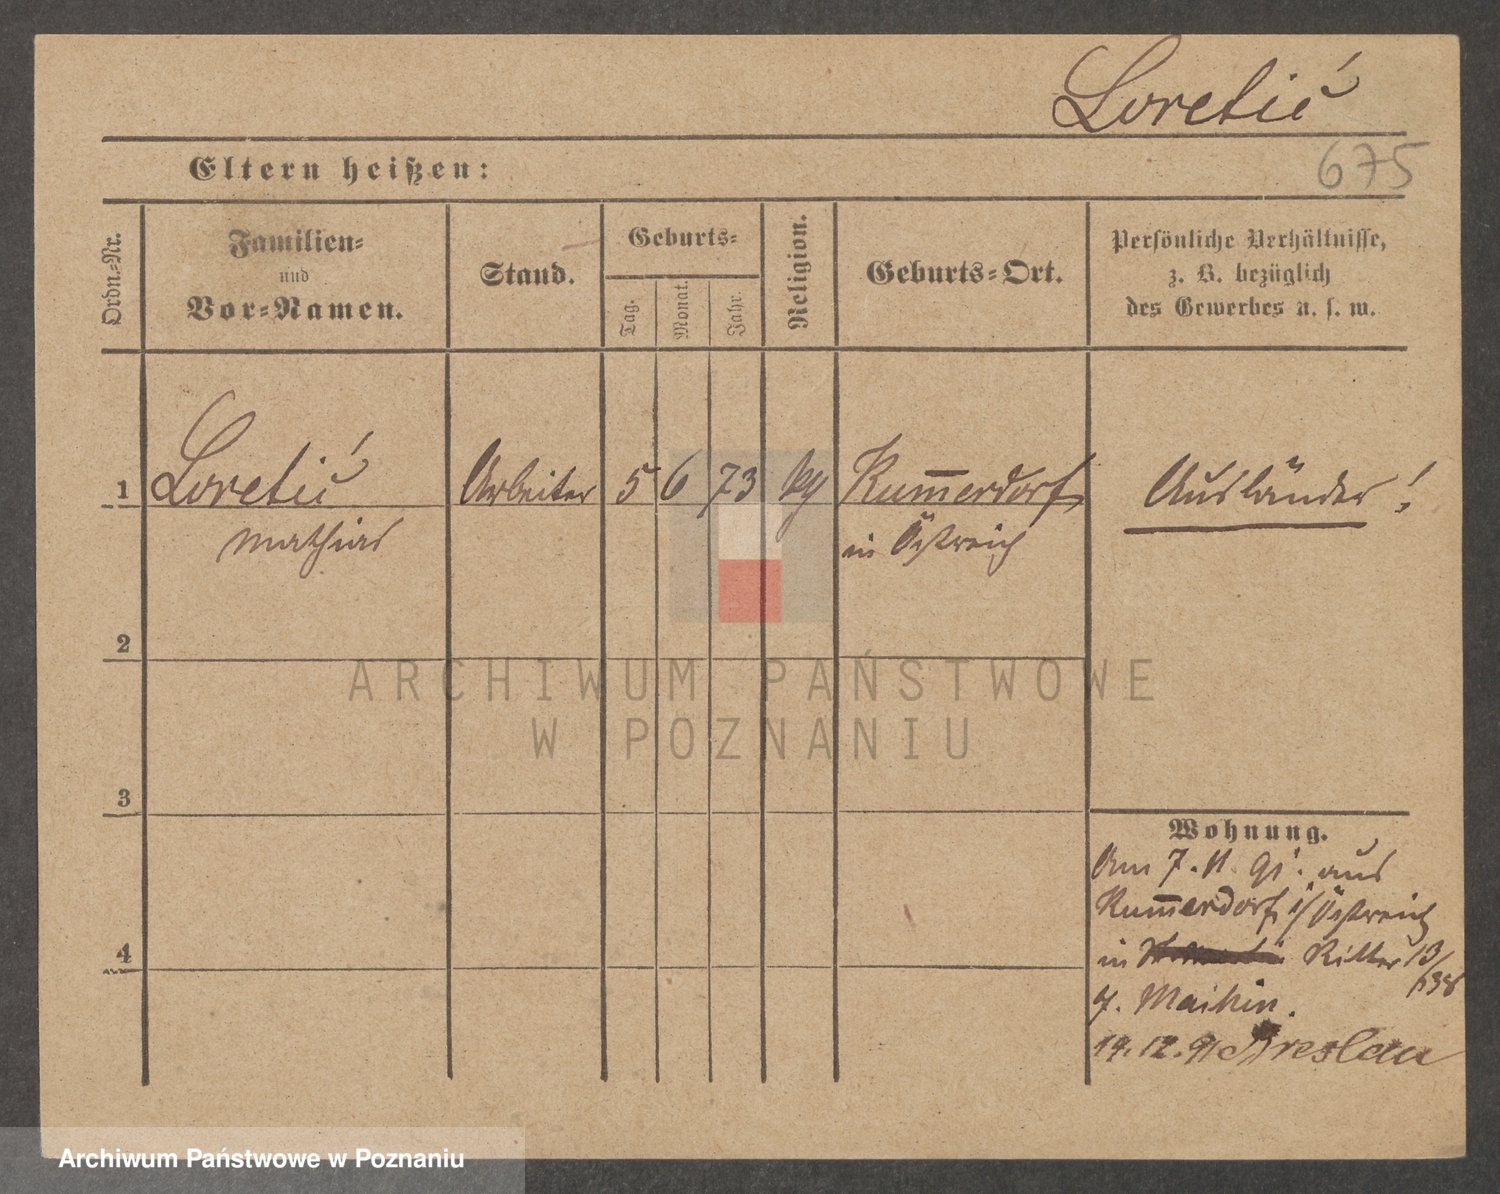 Loretić
675
Eltern heißen:
Ordn.-Nr.
Familien-
und
Vor-Namen.
Stand.
Geburts-
Tag.
Monat.
Jahr.
Religion.
Geburts-Ort.
Persönliche Verhältnisse,
z. B. bezüglich
des Gewerbes u. s. w.
1 Loretić Arbeiter 5 6 73 Kum̅erdorf Ausländer!
Mathias in Östreich
2
ARCHIWUM PAŃSTWOWE
W POZNANIU
3
Wohnung.
Am 7. 11. 91. aus
Kum̅erdorf i/Östreich
4
in Ritter 13/138
19.12.91 Breslau
Archiwum Państwowe w Poznaniu